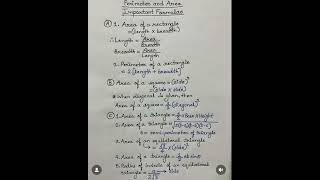 Perimeter and Area
Important Formulas
(A) 1. Area of a rectangle
= (length x breadth)
∴ Length = Area / Breadth
Breadth = Area / Length
2. Perimeter of a rectangle
= 2 (length + breadth)
(B) Area of a square = (side)²
= (side x side)
* When diagonal is given, then
Area of a square = ½ (diagonal)²
(C) 1. Area of a triangle = ½ x Base x Height
2. Area of a triangle =
s = semi perimeter of triangle
3. Area of an equilateral triangle
x (side)²
4. Area of a triangle = ½
5. Radius of incircle of an equilateral
triangle =